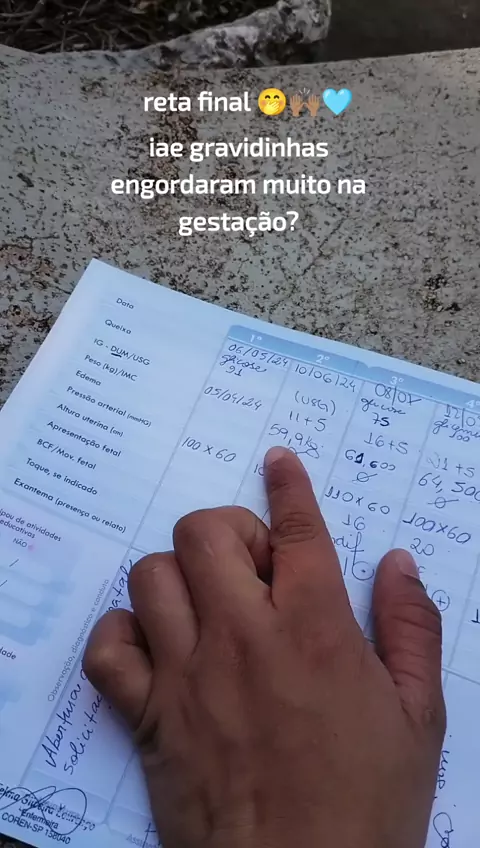 reta final 🤭🙌🏾🩵
iae gravidinhas
engordaram muito na
gestação?
Data
Queixa
IG - DUM/USG
Peso (kg)/IMC
Edema
Pressão arterial (mmHG)
Altura uterina (cm)
Apresentação fetal
BCF/Mov. fetal
Toque, se indicado
Exantema (presença ou relato)
1º
06/05/24
glicose
91
05/04/24
100 x 60
2º
10/06/24
(USG)
11+5
59,9kg
3º
08/07
glicose
75
16+5
61,600
Ø
110 x 60
16
4º
21+5
64,500
Ø
100x60
20
+
pou de atividades
educativas
NÃO
dade
Observação, diagnóstico e conduta
Abertura
Enfermeira
COREN-SP